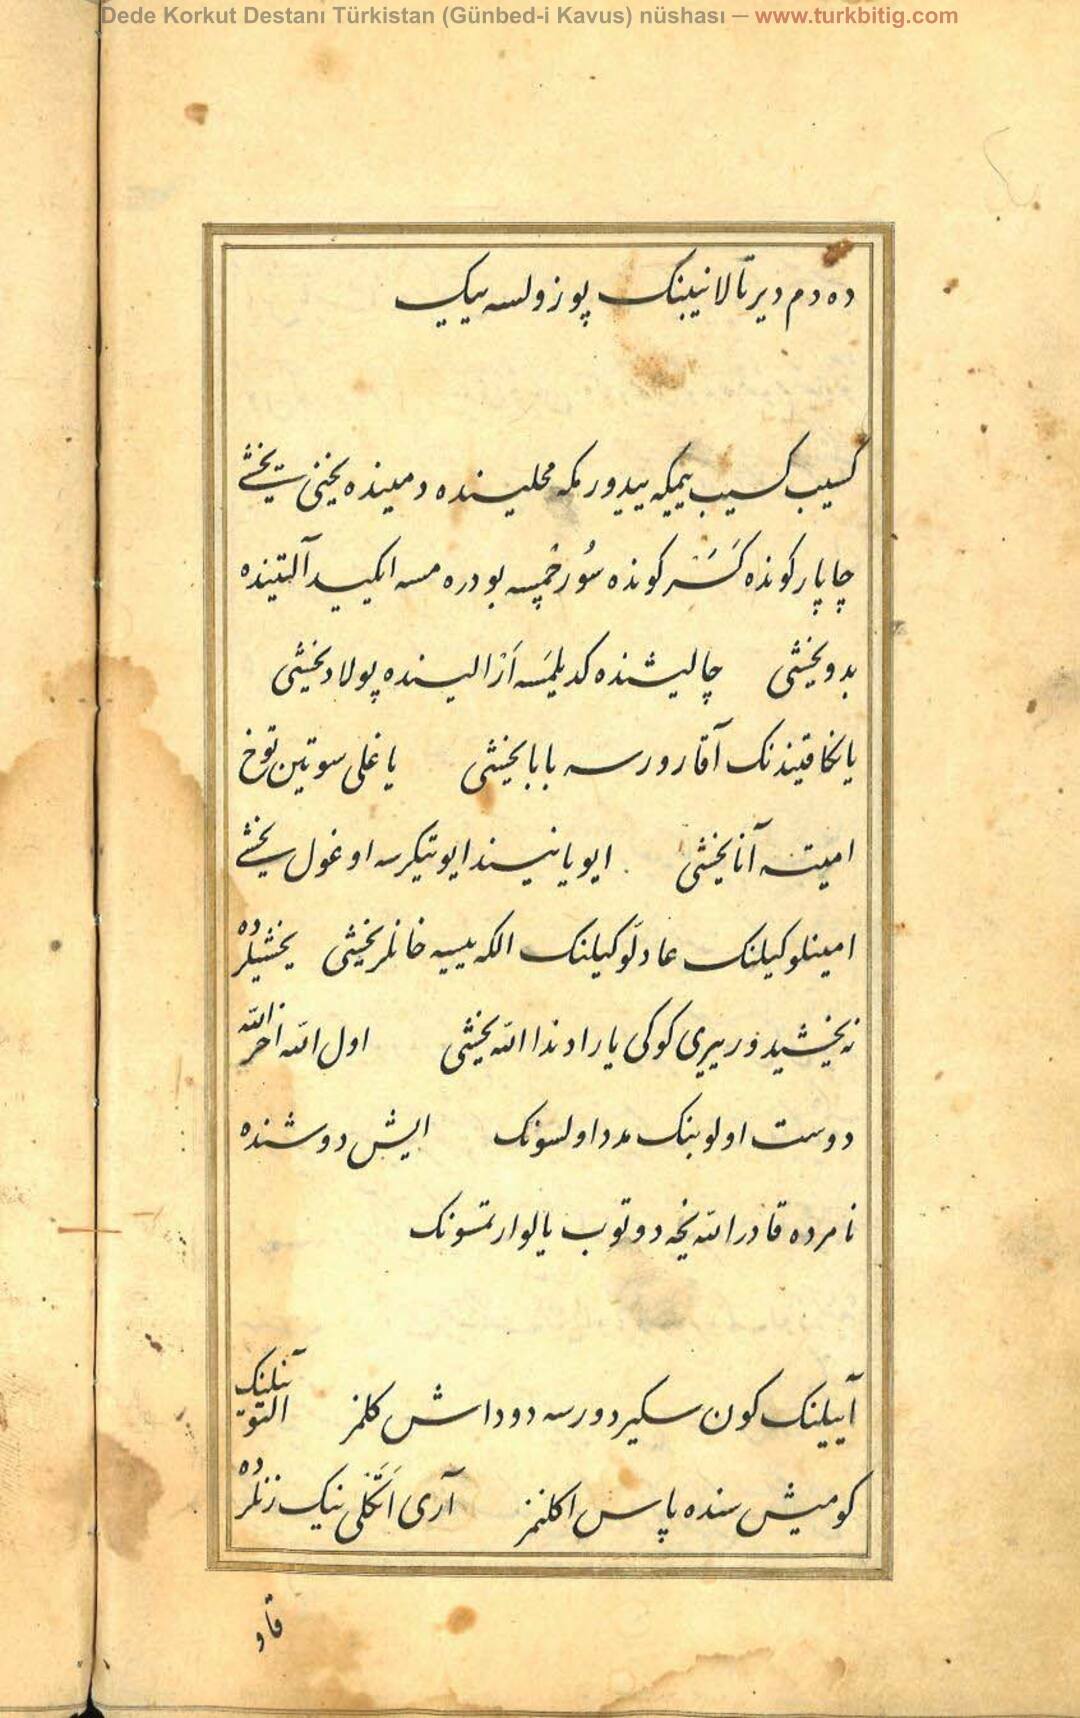 Dede Korkut Destanı Türkistan (Günbed-i Kavus) nüshası — www.turkbitig.com
ده دم دیر تالانیینک پوزولسه ییک
کسیب کسیب ییمکه بیدور بکه محلیسنده دمینده یخنی یخشی
چاپار کونده کَسَر کونده سُورخمپسه بودره مسه ایکید آلتینده
بدو یخشی چالیشنده کدیلمَسه اَز الیسنده پولاد یخشی
یانکاقیندنک آقارورسه بابا یخیشی یاغلی سوتین توخ
امیتسه آنا یخیشی ایو یانیسندا ایو تیکرسه اوغول یخشی
امینلو کیلنک عادلّو کیلنک الکه ییسیه خانلر یخیشی یخشیلرده
نه یخیشیدور ییری کوکی یارادندا الله یخیشی اول الله آخر الله
دوست اولوبنک مدد اولسونک ایش دوشنده
نامرده قادر الله یخه دوتوب یالوارتمسونک
آییلنک کون سکیردورسه دوداش کلمز آنلنک التون
کومیش سنده پاس اکلنمز آری اَتَکلی نیک زنلرده
قاو